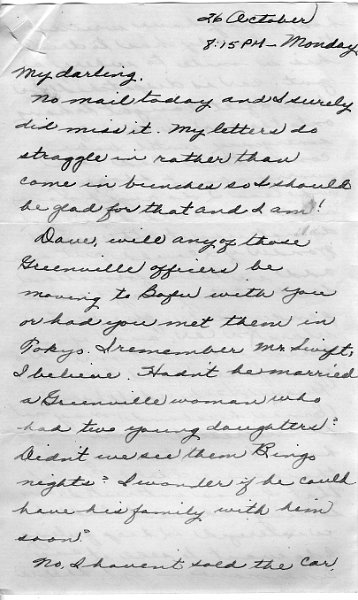 26 October
8:15 PM - Monday
My darling.
No mail today and I surely
did miss it. My letters do
straggle in rather than
come in bunches so I should
be glad for that and I am!
Dave, will any of those
Greenville officers be
moving to Bofu with you
or had you met them in
Tokyo. I remember Mr. Swift,
I believe. Hadn't he married
a Greenville woman who
had two young daughters?
Didn't we see them Bingo
nights? I wonder if he could
have his family with him
soon?
No, I haven't sold the car.